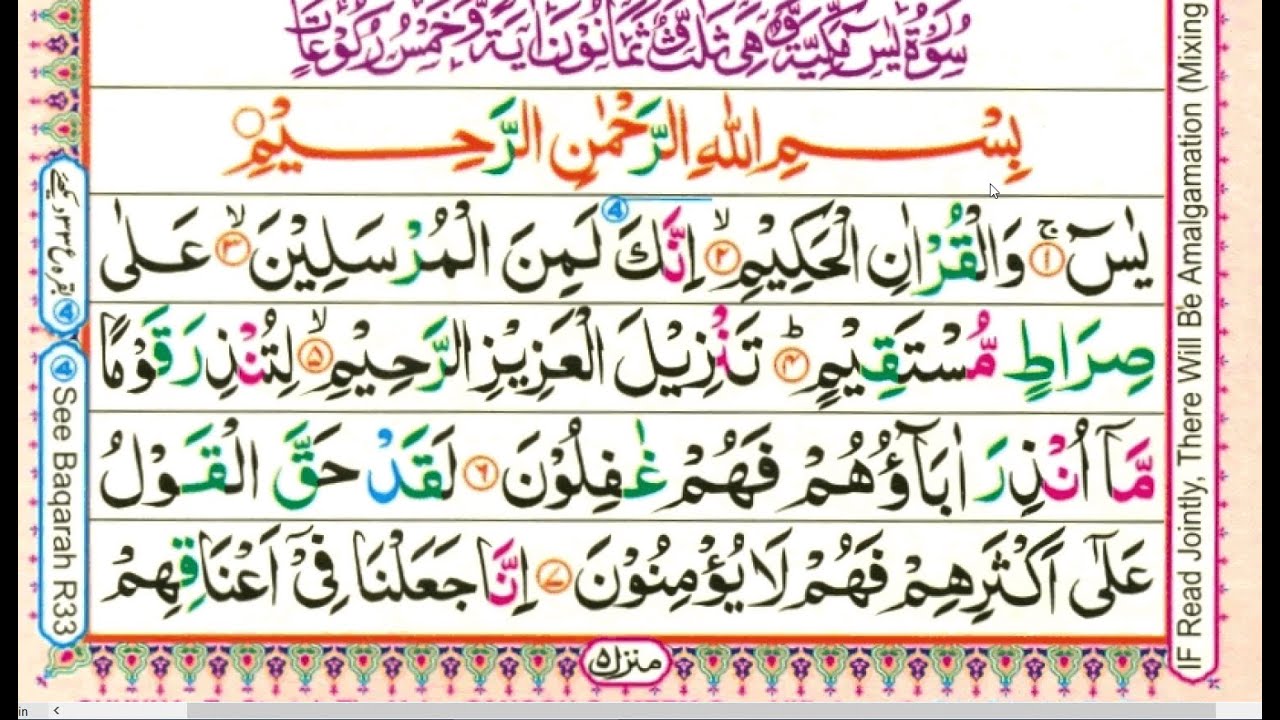 سُوْرَةُ يٰسٓ مَكِّيَّةٌ وَّهِيَ ثَلٰثٌ وَّثَمَانُوْنَ اٰيَةً وَّخَمْسُ رُكُوْعَاتٍ
بِسْمِ اللّٰهِ الرَّحْمٰنِ الرَّحِيْمِ ۝
يٰسٓ ۚ﴿۱﴾ وَالْقُرْاٰنِ الْحَكِيْمِ ۙ﴿۲﴾ اِنَّكَ لَمِنَ الْمُرْسَلِيْنَ ۙ﴿۳﴾ عَلٰى
صِرَاطٍ مُّسْتَقِيْمٍ ؕ﴿۴﴾ تَنْزِيْلَ الْعَزِيْزِ الرَّحِيْمِ ۙ﴿۵﴾ لِتُنْذِرَ قَوْمًا
مَّاۤ اُنْذِرَ اٰبَآؤُهُمْ فَهُمْ غٰفِلُوْنَ ﴿۶﴾ لَقَدْ حَقَّ الْقَوْلُ
عَلٰۤى اَكْثَرِهِمْ فَهُمْ لَا يُؤْمِنُوْنَ ﴿۷﴾ اِنَّا جَعَلْنَا فِيْۤ اَعْنَاقِهِمْ
منزل ۵
④
④
④ See Baqarah R33
IF Read Jointly, There Will Be Amalgamation (Mixing
in